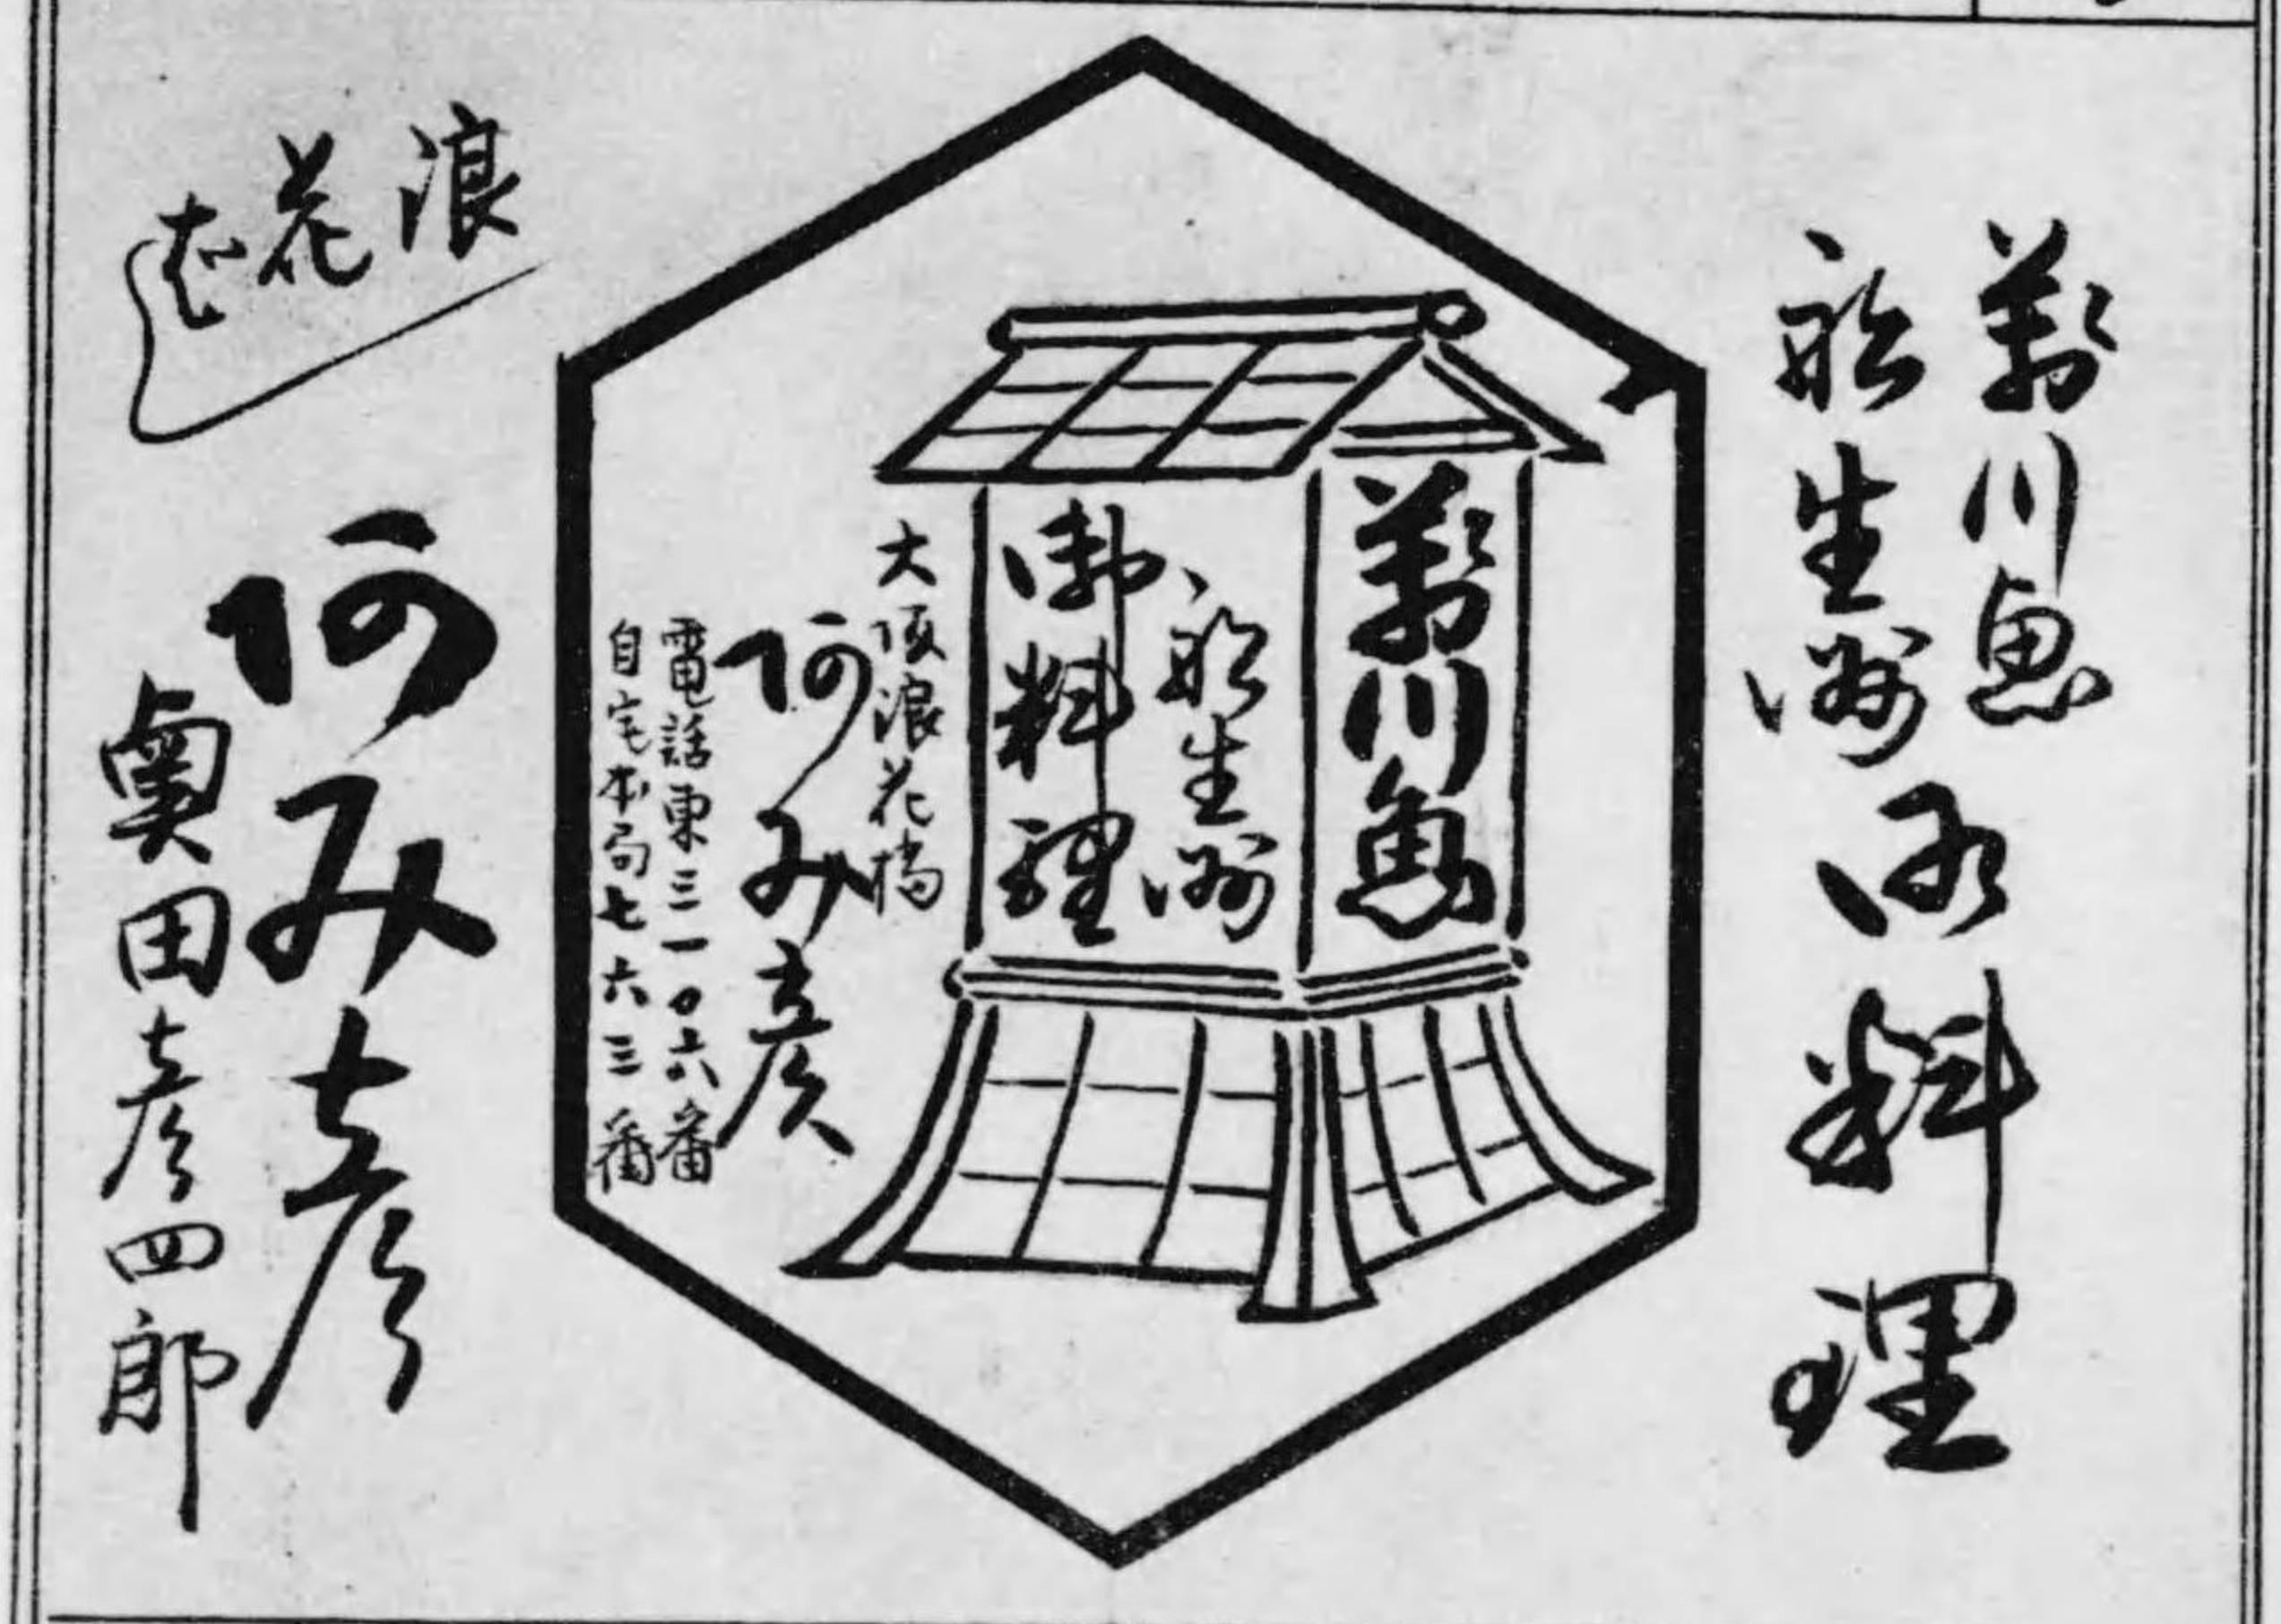 萬川魚
船生洲
御料理
萬川魚
船生洲
御料理
大阪浪花橋
阿み彦
電話東三一〇六番
自宅本局七六三番
浪花
阿み彦
奥田彦四郎